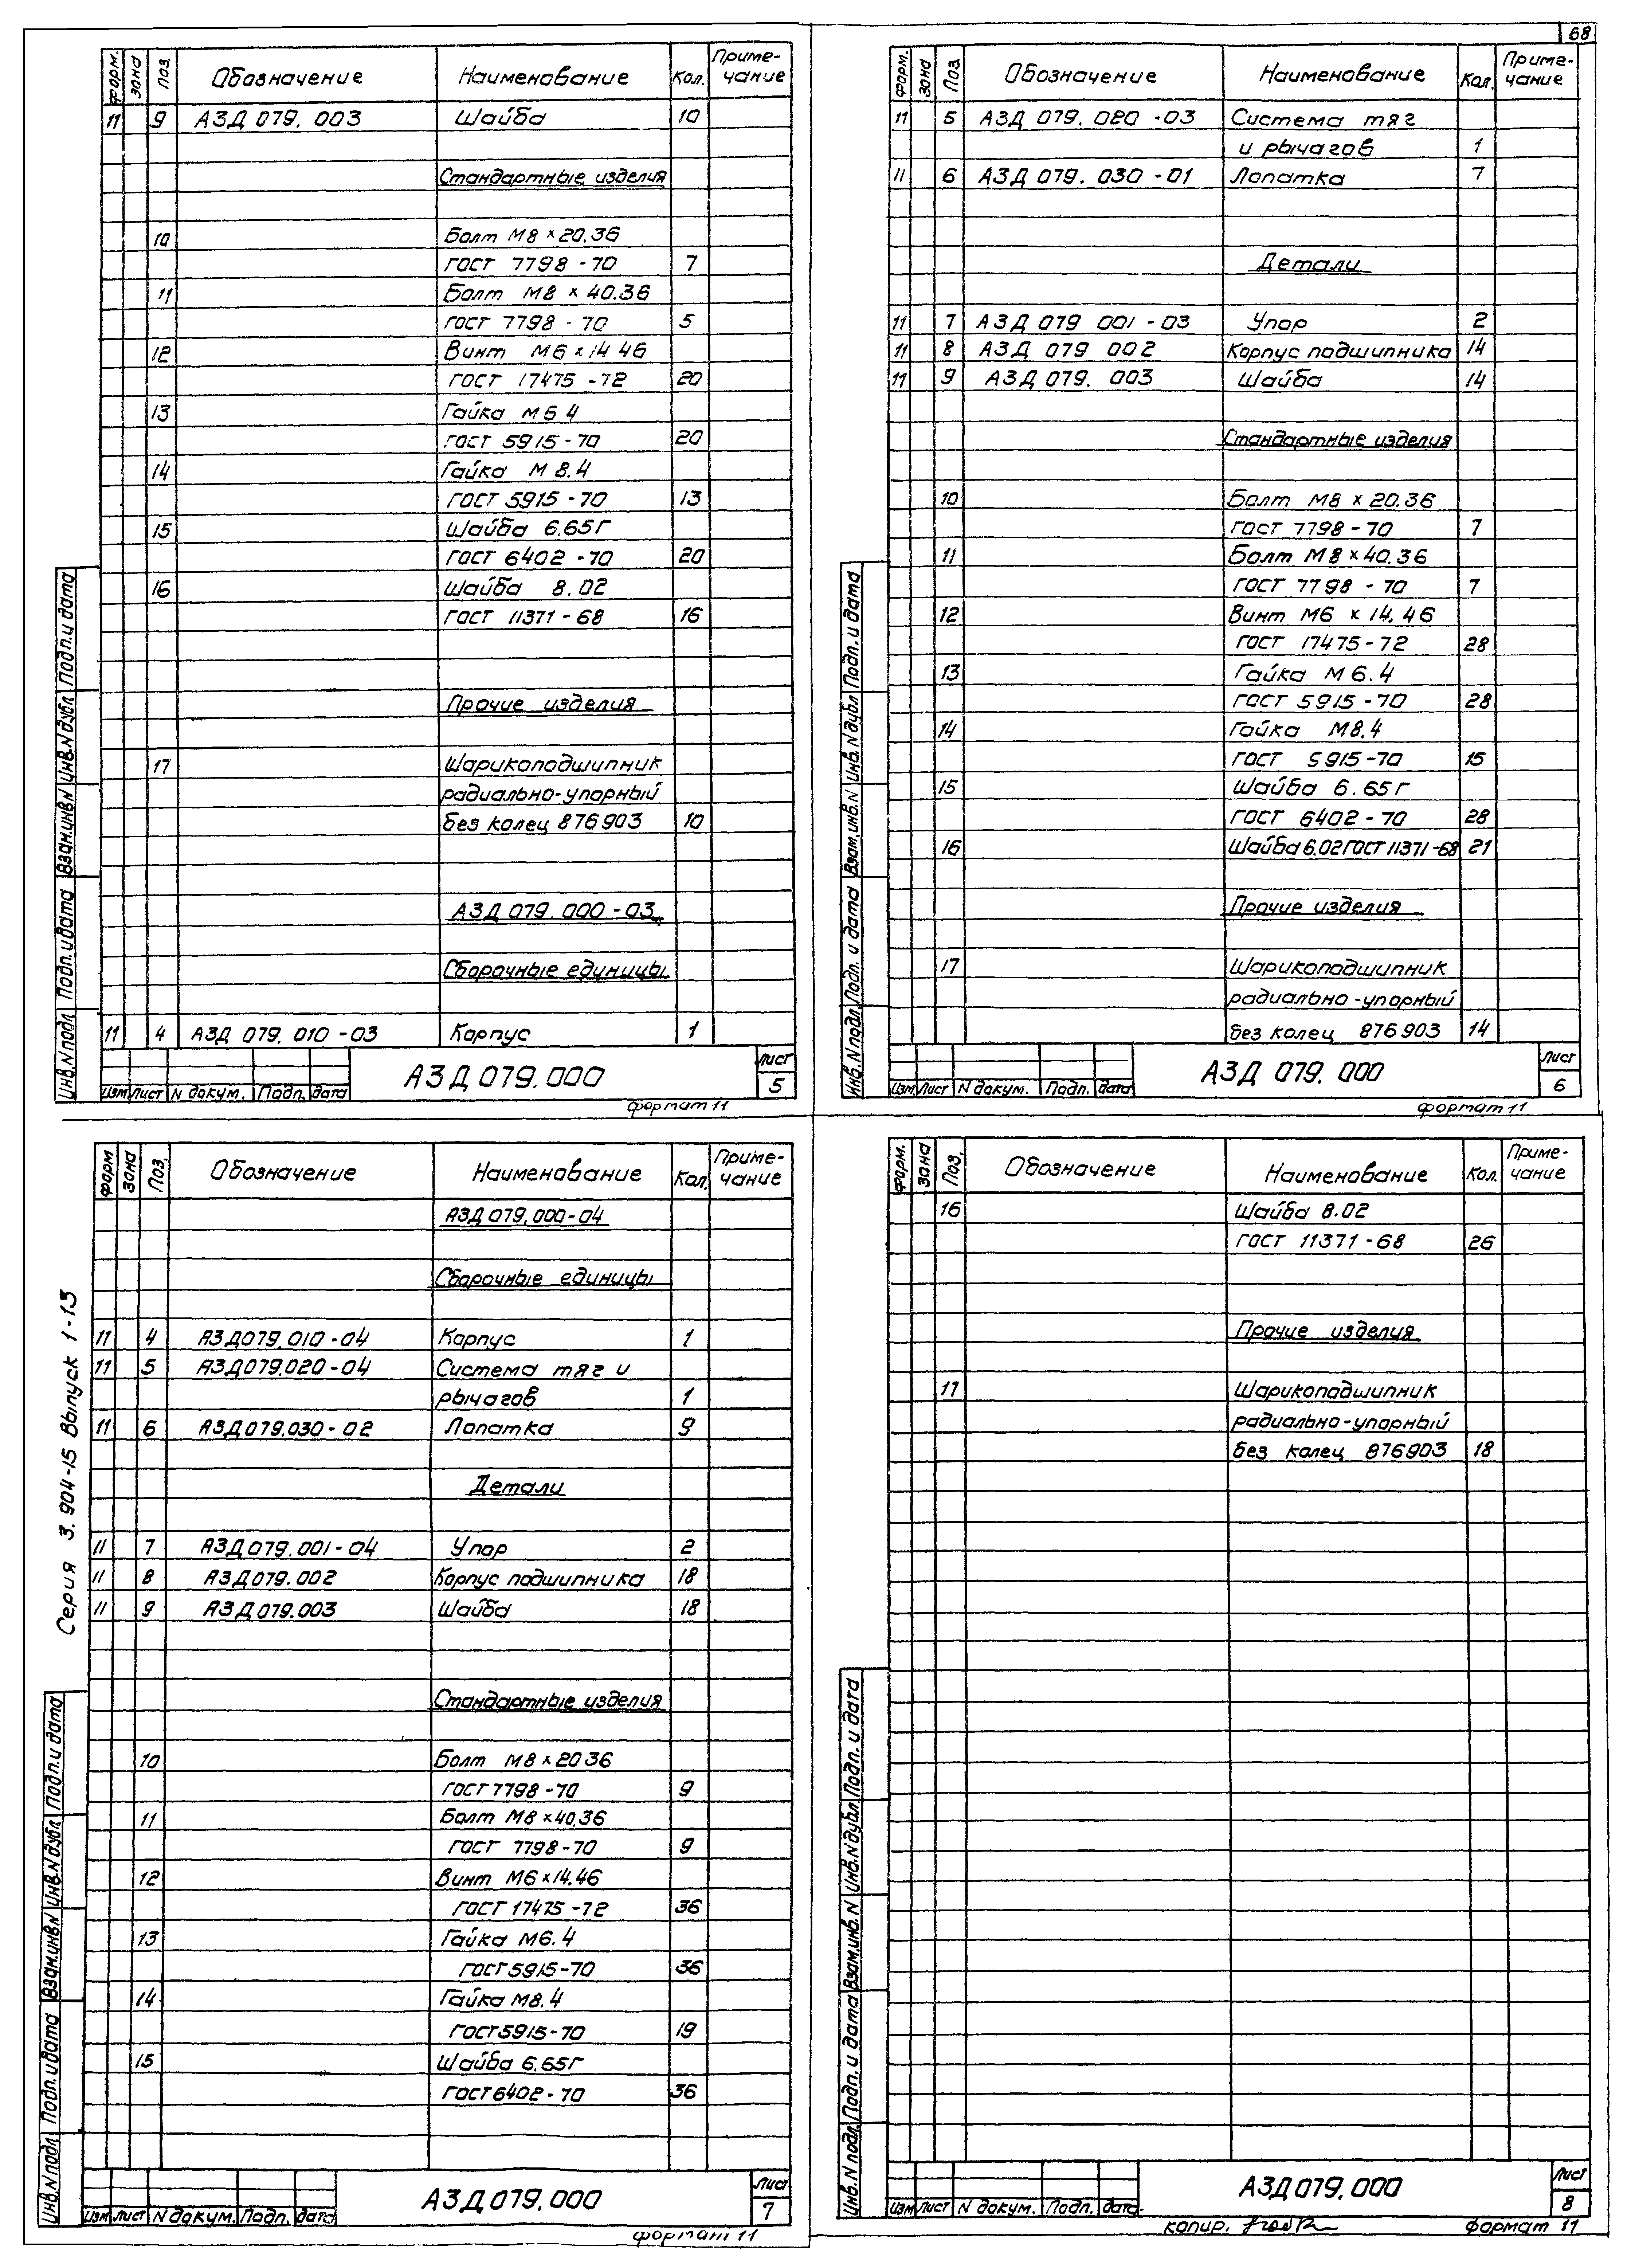 68
форм. зона Поз. Обозначение Наименование Кол. Приме-
чание
11 9 АЗД 079. 003 Шайба 10
Стандартные изделия
10 Болт М8 × 20.36
ГОСТ 7798 - 70 7
11 Болт М8 × 40.36
ГОСТ 7798 - 70 5
12 Винт М6 × 14 46
ГОСТ 17475 - 72 20
13 Гайка М 6 4
ГОСТ 5915 - 70 20
14 Гайка М 8.4
ГОСТ 5915 - 70 13
15 Шайба 6.65Г
ГОСТ 6402 - 70 20
16 Шайба 8.02
ГОСТ 11371 - 68 16
Прочие изделия
17 Шарикоподшипник
радиально-упорный
без колец 876903 10
АЗД 079. 000 - 03
Сборочные единицы
11 4 АЗД 079. 010 - 03 Корпус 1
Инв.N подл Подп. и дата Взам.инв.N Инв.N дубл Подп. и дата
Изм Лист N докум. Подп. дата
АЗД 079.000
Лист
5
формат 11
форм. зона Поз. Обозначение Наименование Кол. Приме-
чание
11 5 АЗД 079. 020 - 03 Система тяг
и рычагов 1
11 6 АЗД 079. 030 - 01 Лопатка 7
Детали
11 7 АЗД 079 001 - 03 Упор 2
11 8 АЗД 079 002 Корпус подшипника 14
11 9 АЗД 079. 003 Шайба 14
Стандартные изделия
10 Болт М8 × 20.36
ГОСТ 7798 - 70 7
11 Болт М8 × 40.36
ГОСТ 7798 - 70 7
12 Винт М6 × 14.46
ГОСТ 17475 - 72 28
13 Гайка М 6.4
ГОСТ 5915 - 70 28
14 Гайка М8.4
ГОСТ 5915 - 70 15
15 Шайба 6.65Г
ГОСТ 6402 - 70 28
16 Шайба 6.02 ГОСТ 11371 - 68 21
Прочие изделия
17 Шарикоподшипник
радиально-упорный
без колец 876903 14
Инв.N подл Подп. и дата Взам.инв.N Инв.N дубл Подп. и дата
Изм Лист N докум. Подп. дата
АЗД 079. 000
Лист
6
формат 11
Серия 3.904-15 Выпуск 1-13
форм зона Поз. Обозначение Наименование Кол. Приме-
чание
АЗД 079.000-04
Сборочные единицы
11 4 АЗД079.010-04 Корпус 1
11 5 АЗД079.020-04 Система тяг и
рычагов 1
11 6 АЗД079.030-02 Лопатка 9
Детали
11 7 АЗД079.001-04 Упор 2
11 8 АЗД079.002 Корпус подшипника 18
11 9 АЗД079.003 Шайба 18
Стандартные изделия
10 Болт М8 × 20 36
ГОСТ 7798-70 9
11 Болт М8 × 40.36
ГОСТ 7798-70 9
12 Винт М6 × 14.46
ГОСТ 17475-72 36
13 Гайка М6.4
ГОСТ 5915-70 36
14 Гайка М8.4
ГОСТ 5915-70 19
15 Шайба 6.65Г
ГОСТ 6402-70 36
Инв.N подл Подп. и дата Взам.инв.N Инв.N дубл Подп. и дата
Изм Лист N докум. Подп. дата
АЗД 079.000
Лист
7
формат 11
форм. зона Поз. Обозначение Наименование Кол. Приме-
чание
16 Шайба 8.02
ГОСТ 11371-68 26
Прочие изделия
17 Шарикоподшипник
радиально-упорный
без колец 876903 18
Инв.N подл. Подп. и дата Взам.инв.N Инв.N дубл Подп. и дата
Изм Лист N докум. Подп. дата
АЗД 079.000
Лист
8
копир. формат 11